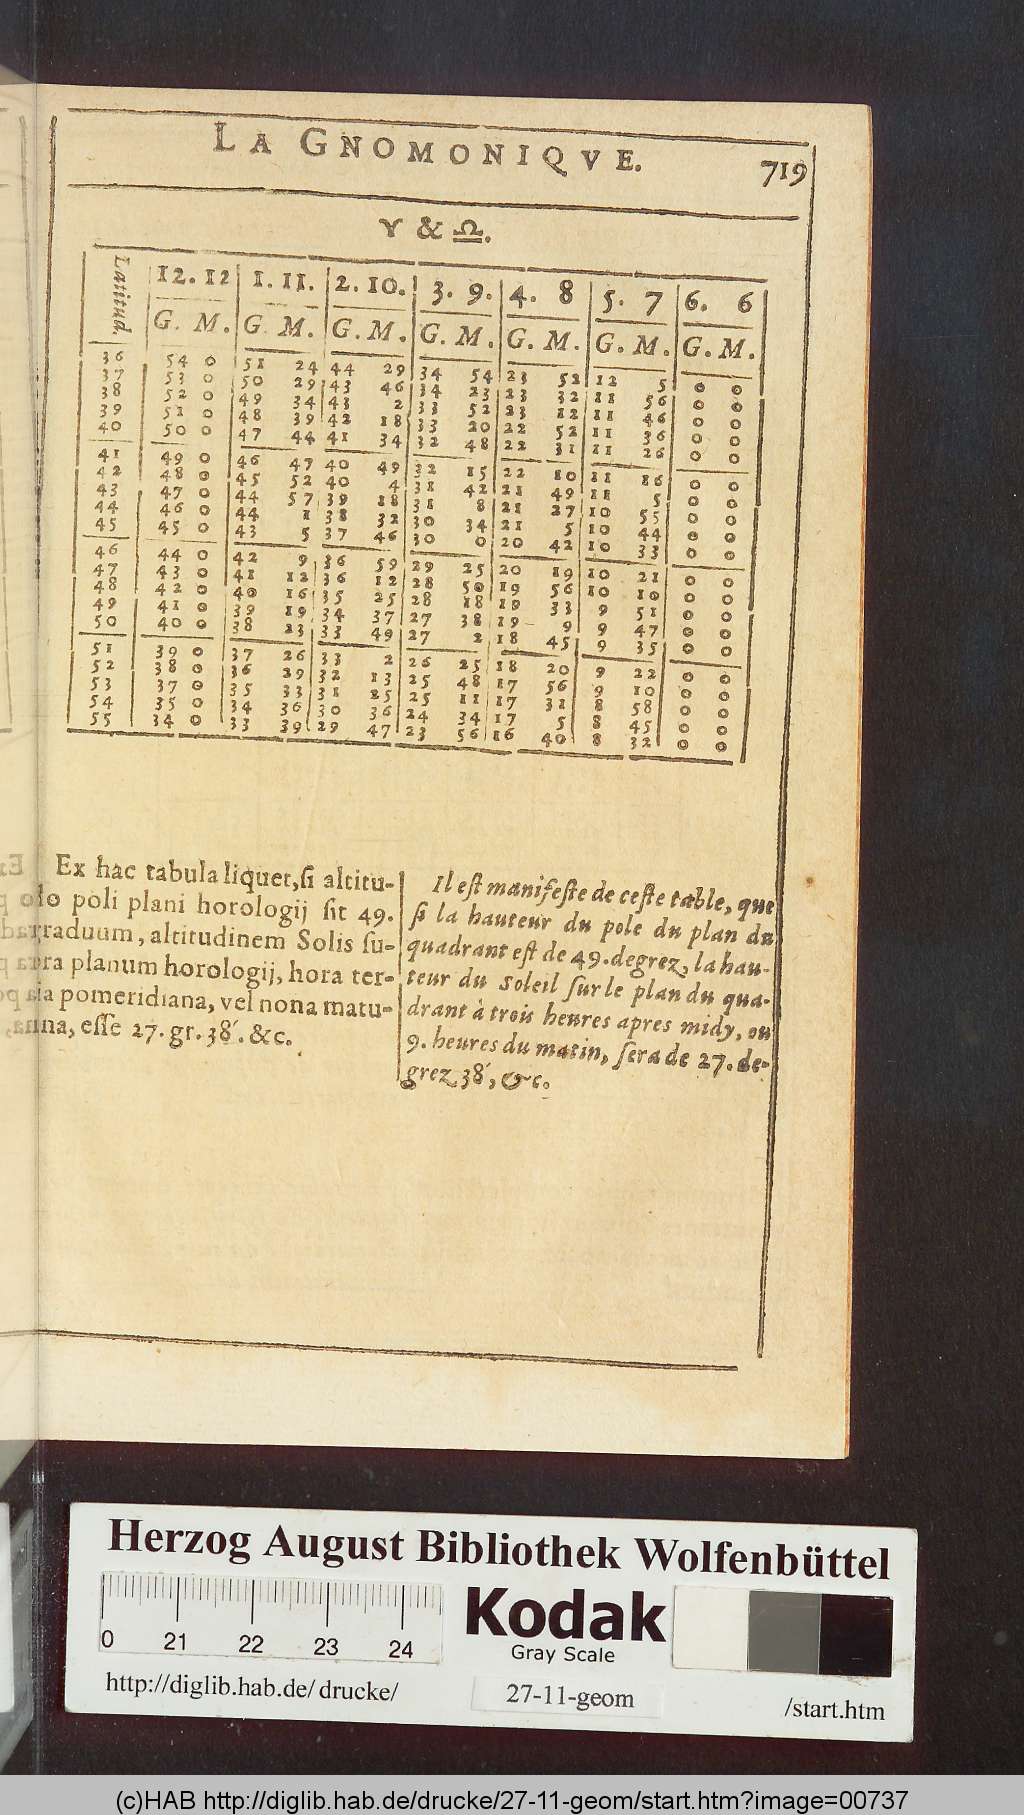 LA GNOMONIQVE. 719
♈ & ♎.
Latitud. 12. 12 1. 11. 2. 10. 3. 9. 4. 8 5. 7 6. 6
G. M. G. M. G. M. G. M. G. M. G. M. G. M.
36 54 0 51 24 44 29 34 54 23 52 12 5 0 0
37 53 0 50 29 43 46 34 23 23 32 11 56 0 0
38 52 0 49 34 43 2 33 52 23 12 11 46 0 0
39 51 0 48 39 42 18 33 20 22 52 11 36 0 0
40 50 0 47 44 41 34 32 48 22 31 11 26 0 0
41 49 0 46 47 40 49 32 15 22 10 11 16 0 0
42 48 0 45 52 40 4 31 42 21 49 11 5 0 0
43 47 0 44 57 39 18 31 8 21 27 10 55 0 0
44 46 0 44 1 38 32 30 34 21 5 10 44 0 0
45 45 0 43 5 37 46 30 0 20 42 10 33 0 0
46 44 0 42 9 36 59 29 25 20 19 10 21 0 0
47 43 0 41 12 36 12 28 50 19 56 10 10 0 0
48 42 0 40 16 35 25 28 18 19 33 9 51 0 0
49 41 0 39 19 34 37 27 38 19 9 9 47 0 0
50 40 0 38 23 33 49 27 2 18 45 9 35 0 0
51 39 0 37 26 33 2 26 25 18 20 9 22 0 0
52 38 0 36 29 32 13 25 48 17 56 9 10 0 0
53 37 0 35 33 31 25 25 11 17 31 8 58 0 0
54 35 0 34 36 30 36 24 34 17 5 8 45 0 0
55 34 0 33 39 29 47 23 56 16 40 8 32 0 0
Ex hac tabula liquet, si altitu-
do poli plani horologij sit 49.
graduum, altitudinem Solis su-
pra planum horologij, hora ter-
tia pomeridiana, vel nona matu-
tina, esse 27. gr. 38'. &c.
Il est manifeste de ceste table, que
si la hauteur du pole du plan du
quadrant est de 49. degrez, la hau-
teur du Soleil sur le plan du qua-
drant à trois heures apres midy, ou
9. heures du matin, sera de 27. de-
grez 38', &c.
Herzog August Bibliothek Wolfenbüttel
0 21 22 23 24
Kodak
Gray Scale
http://diglib.hab.de/drucke/
27-11-geom
/start.htm
(c)HAB http://diglib.hab.de/drucke/27-11-geom/start.htm?image=00737